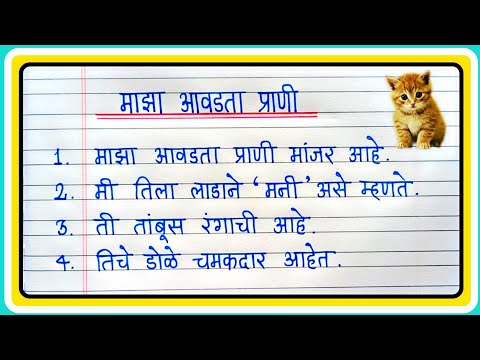 माझा आवडता प्राणी
1. माझा आवडता प्राणी मांजर आहे.
2. मी तिला लाडाने ‘मनी’ असे म्हणते.
3. ती तांबूस रंगाची आहे.
4. तिचे डोळे चमकदार आहेत.